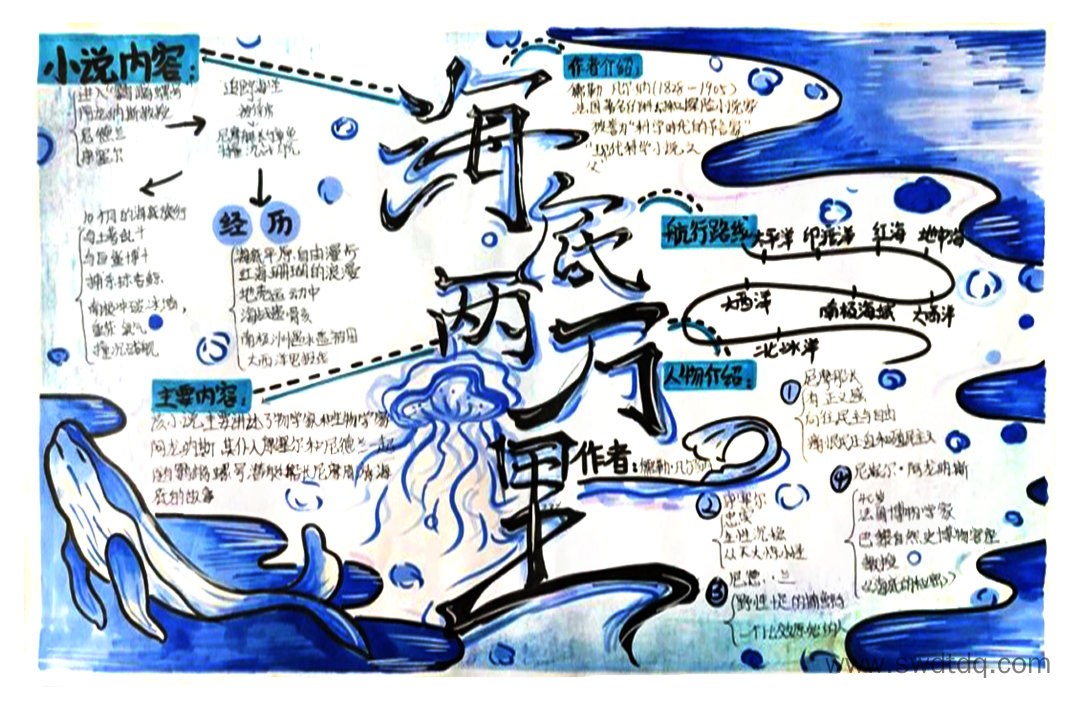 小说内容:
进入"鹦鹉螺号"
阿龙纳斯教授
尼德兰
康塞尔
追踪海怪
尼摩船长
10个月的海底旅行
与土著战斗
与巨鲨搏斗
捕杀抹香鲸
南极冲破冰墙,
重获氧气
撞沉战舰
经历
海底平原自由漫步
红海珊瑚的浪漫
地壳运动中
南极洲遇冰患被困
主要内容:
该小说主要讲述了物学家和生物学家
阿龙纳斯 其仆人康塞尔和尼德兰一起
随鹦鹉螺号潜艇船长尼摩周游海
底的故事
海底两万里
作者:儒勒·凡尔纳
作者介绍:
儒勒 凡尔纳(1828-1905)
法国著名的科幻和探险小说家
被誉为"科学时代的预言家"
"现代科学小说之
父"
航行路线
太平洋 印度洋 红海 地中海
大西洋 南极海域 大西洋
北冰洋
人物介绍:
① 尼摩船长
有正义感
向往民主与自由
痛恨民主自由和殖民主义
② 康塞尔
忠诚
生性沉稳
从不大惊小怪
③ 尼德·兰
野性十足的捕鲸手
一个比较原始的人
④ 尼埃尔·阿龙纳斯
40岁
法国博物学家
巴黎自然史博物馆座
教授
《海底的秘密》
www.swdtdq.com